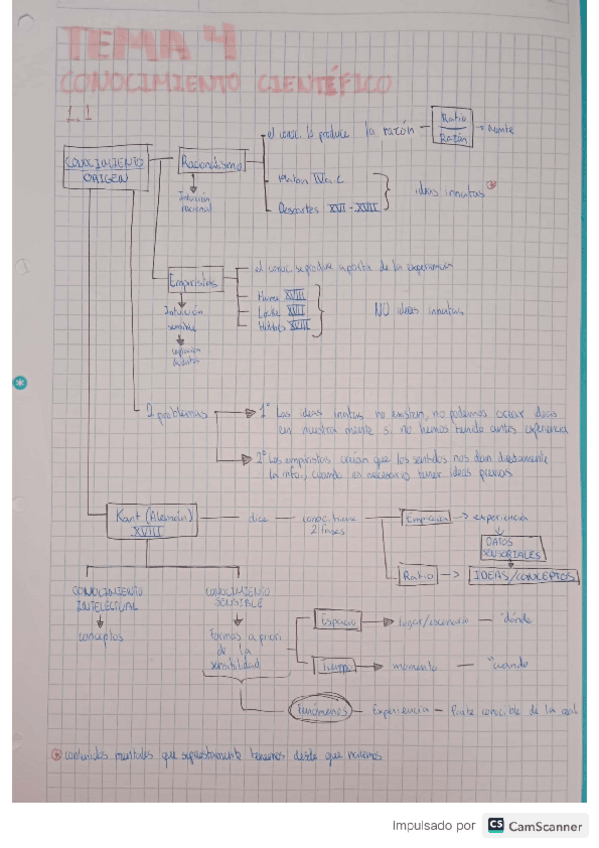 TEMA 4
CONOCIMIENTO CIENTÍFICO
1.1
CONOCIMIENTO ORIGEN
Racionalismo
el conoc. lo produce la razón
Ratio
Razón
Intuición
racional
Platón IV a.C
Descartes XVI - XVII
ideas innatas
Empiristas
el conoc. se produce a partir de la experiencia
Intuición
sensible
Hume XVIII
Locke XVII
Hobbes XVIII
NO ideas innatas
2 problemas
1° Las ideas innatas no existen, no podemos crear ideas
en nuestra mente si no hemos tenido antes experiencia
2° Los empiristas creían que los sentidos nos dan directamente
la info, cuando es necesario tener ideas previas
Kant (Alemán)
XVIII
dice
conoc. tiene
2 fases
Empírica
experiencia
DATOS
SENSORIALES
Ratio
IDEAS/CONCEPTOS
CONOCIMIENTO
INTELECTUAL
conceptos
CONOCIMIENTO
SENSIBLE
formas a priori
de la
sensibilidad
Espacio
lugar/escenario
"dónde
Tiempo
momento
"cuando
fenómenos
Experiencia - Parte conocible de la
contenidos mentales que supuestamente tenemos desde que nacemos
Impulsado por CS CamScanner